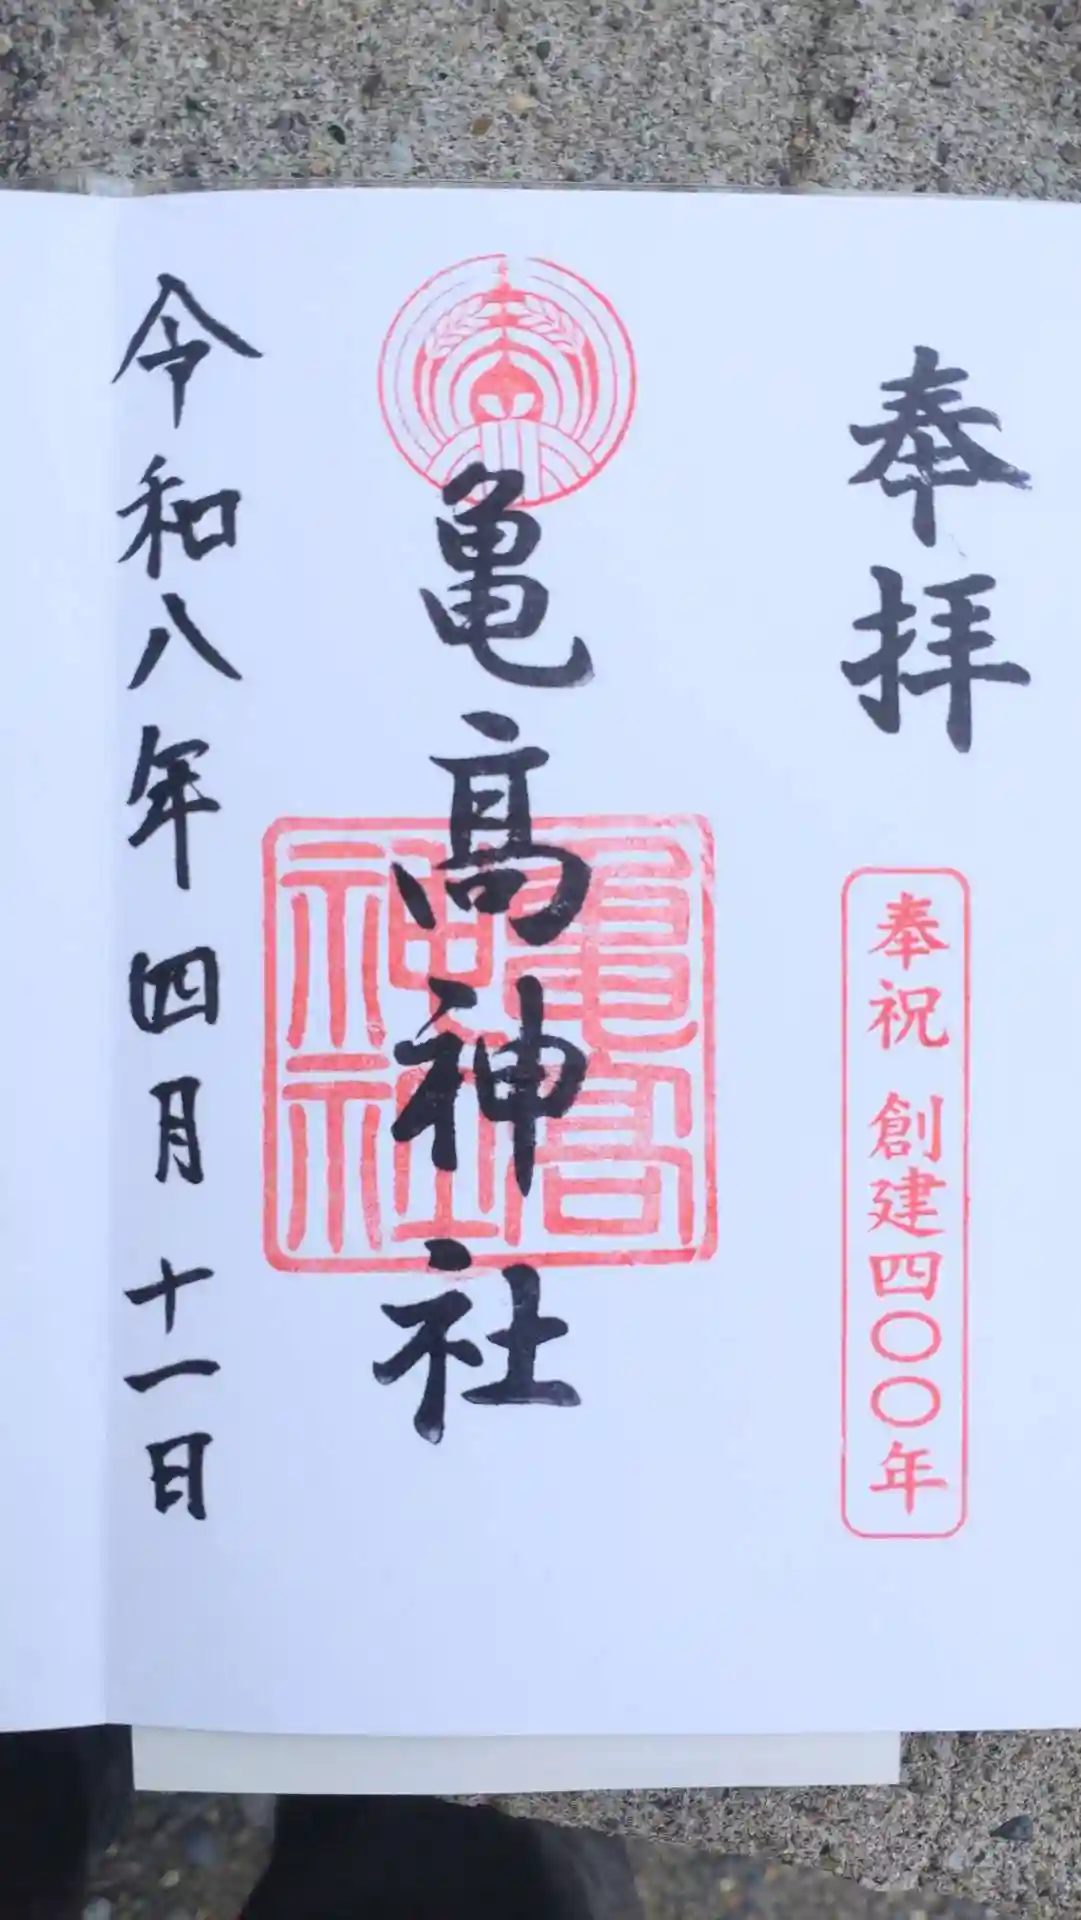 奉拝
奉祝 創建四〇〇年
亀髙神社
亀高
神社
令和八年四月十一日